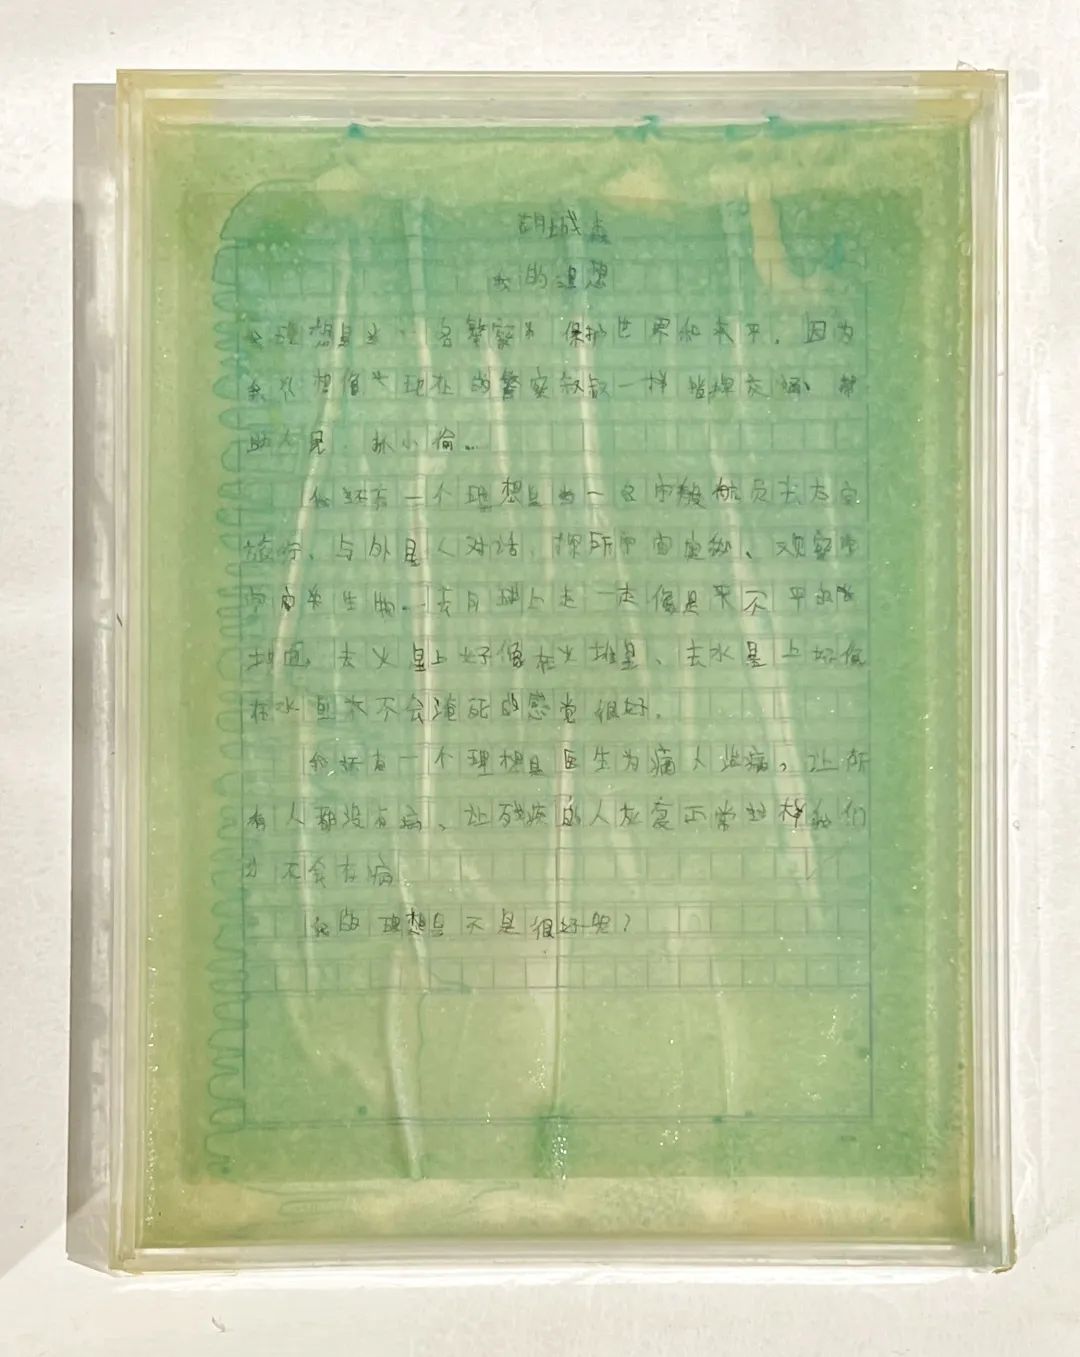 我的理想
理想是当一名警察 保护世界和平。因为
想像 现在的警察叔叔一样指挥交通、帮
助人民 抓小偷..
我还有一个理想是当一名宇 航员去太空
旅行、与外星人对话、探 宇宙 、观察宇
宙 生物..去月球上走一走像是 不平
地 去火星上好像在火堆里、去水星上好像
在水里 不会淹死的感觉很好。
我还有一个理想是医生为病人 病。让所
有人都没有病、让残疾的人 复正常 样我们
才不会有病
我的理想是不是很好呢?